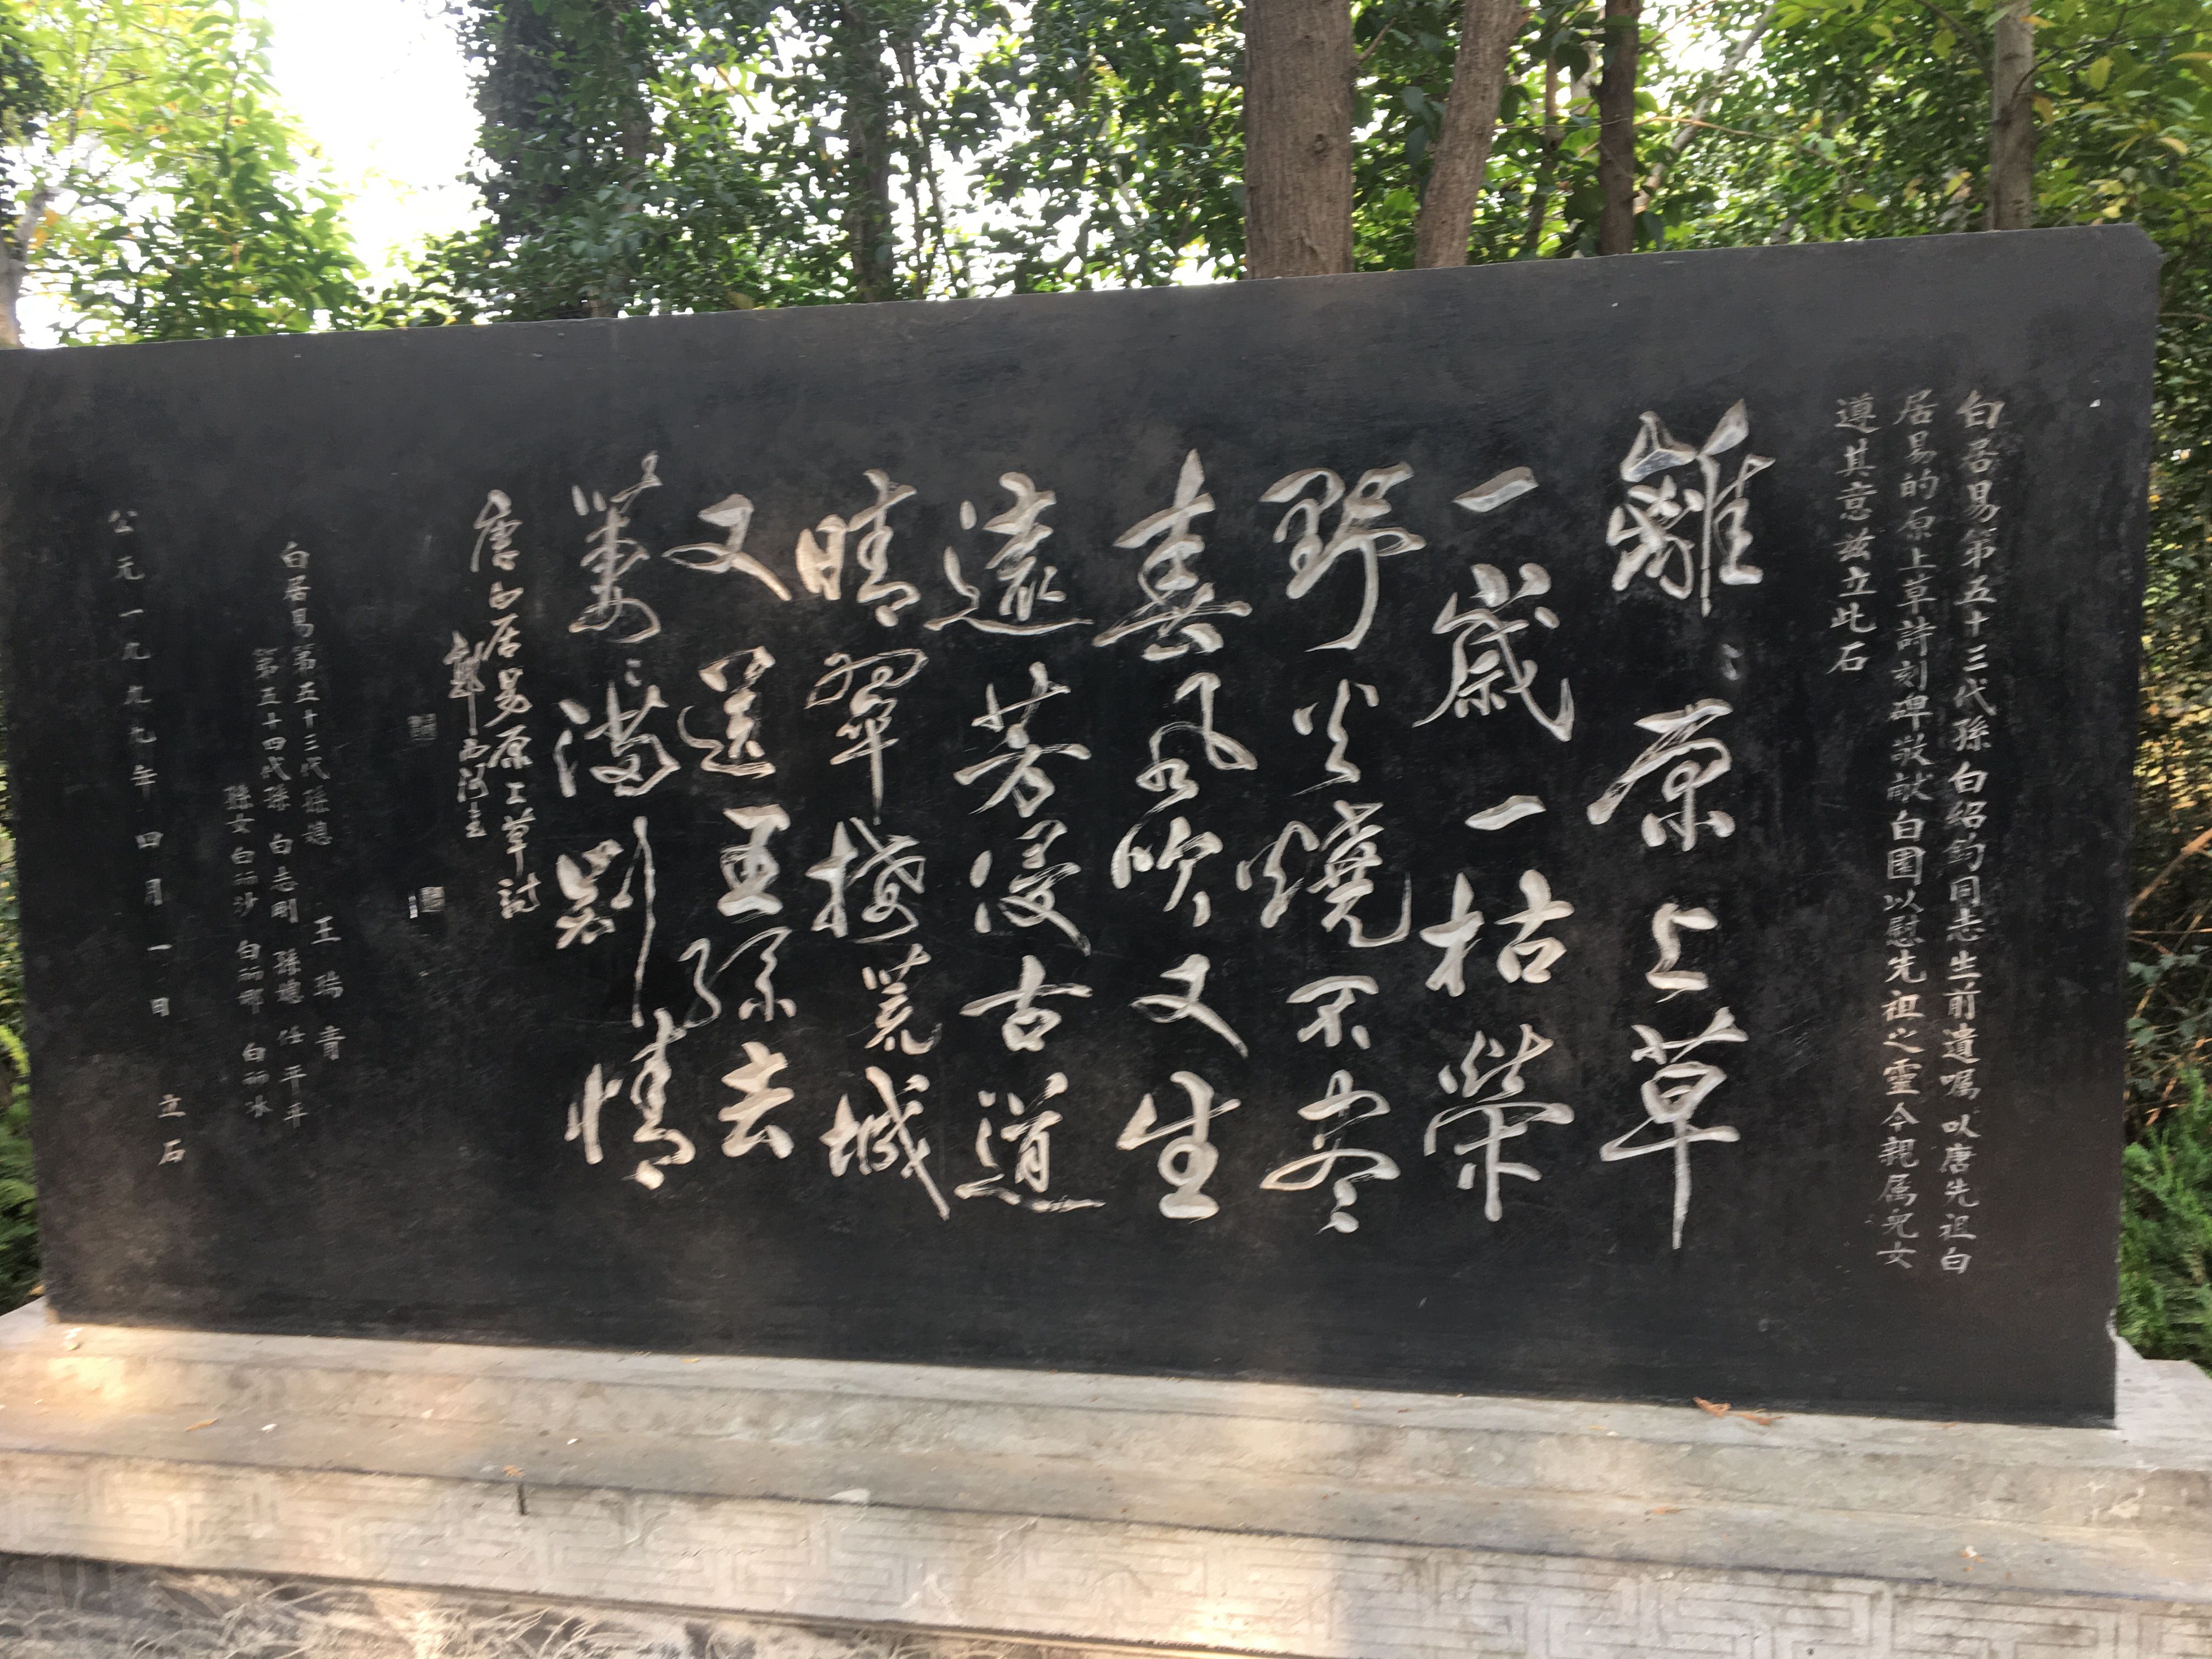 白居易第五十三代孫白紹鈞同志生前遺囑以唐先祖白
居易的原上草詩刻碑敬献白園以慰先祖之靈今親属兒女
遵其意兹立此石
離〻原上草
一歲一枯榮
野火燒不尽
春風吹又生
遠芳侵古道
晴翠接荒城
又送王孫去
萋〻滿別情
唐白居易原上草詩
白居易第五十三代孫媳 王瑞青
第五十四代孫 白志剛 孫媳 任平平
孫女 白沙 白 白冰
公元一九九九年四月一日 立石